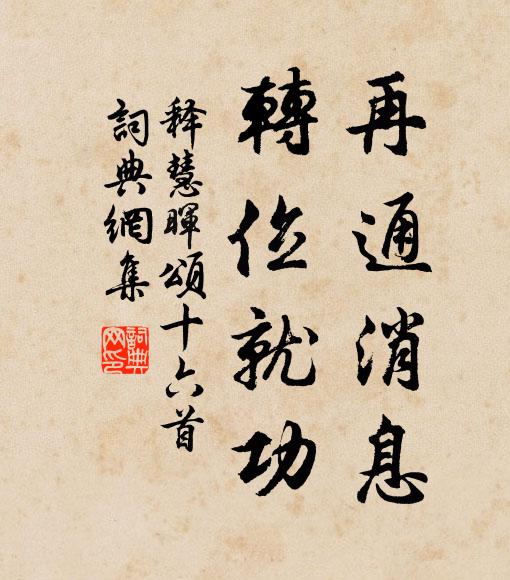 再通消息
轉位就功
釋慧暉頌十六首
詞典網集
詞典網印